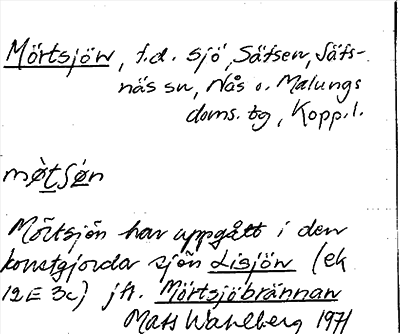 Mörtsjön, f.d. sjö, Säfsen, Säfs-
näs sn, Nås o. Malungs
doms. tg, Kopp.l.
mø̀tsø̀n
Mörtsjön har uppgått i den
konstgjorda sjön Lisjön (ek
12E 3c) jfr. Mörtsjöbrännan
Mats Wahlberg 1971